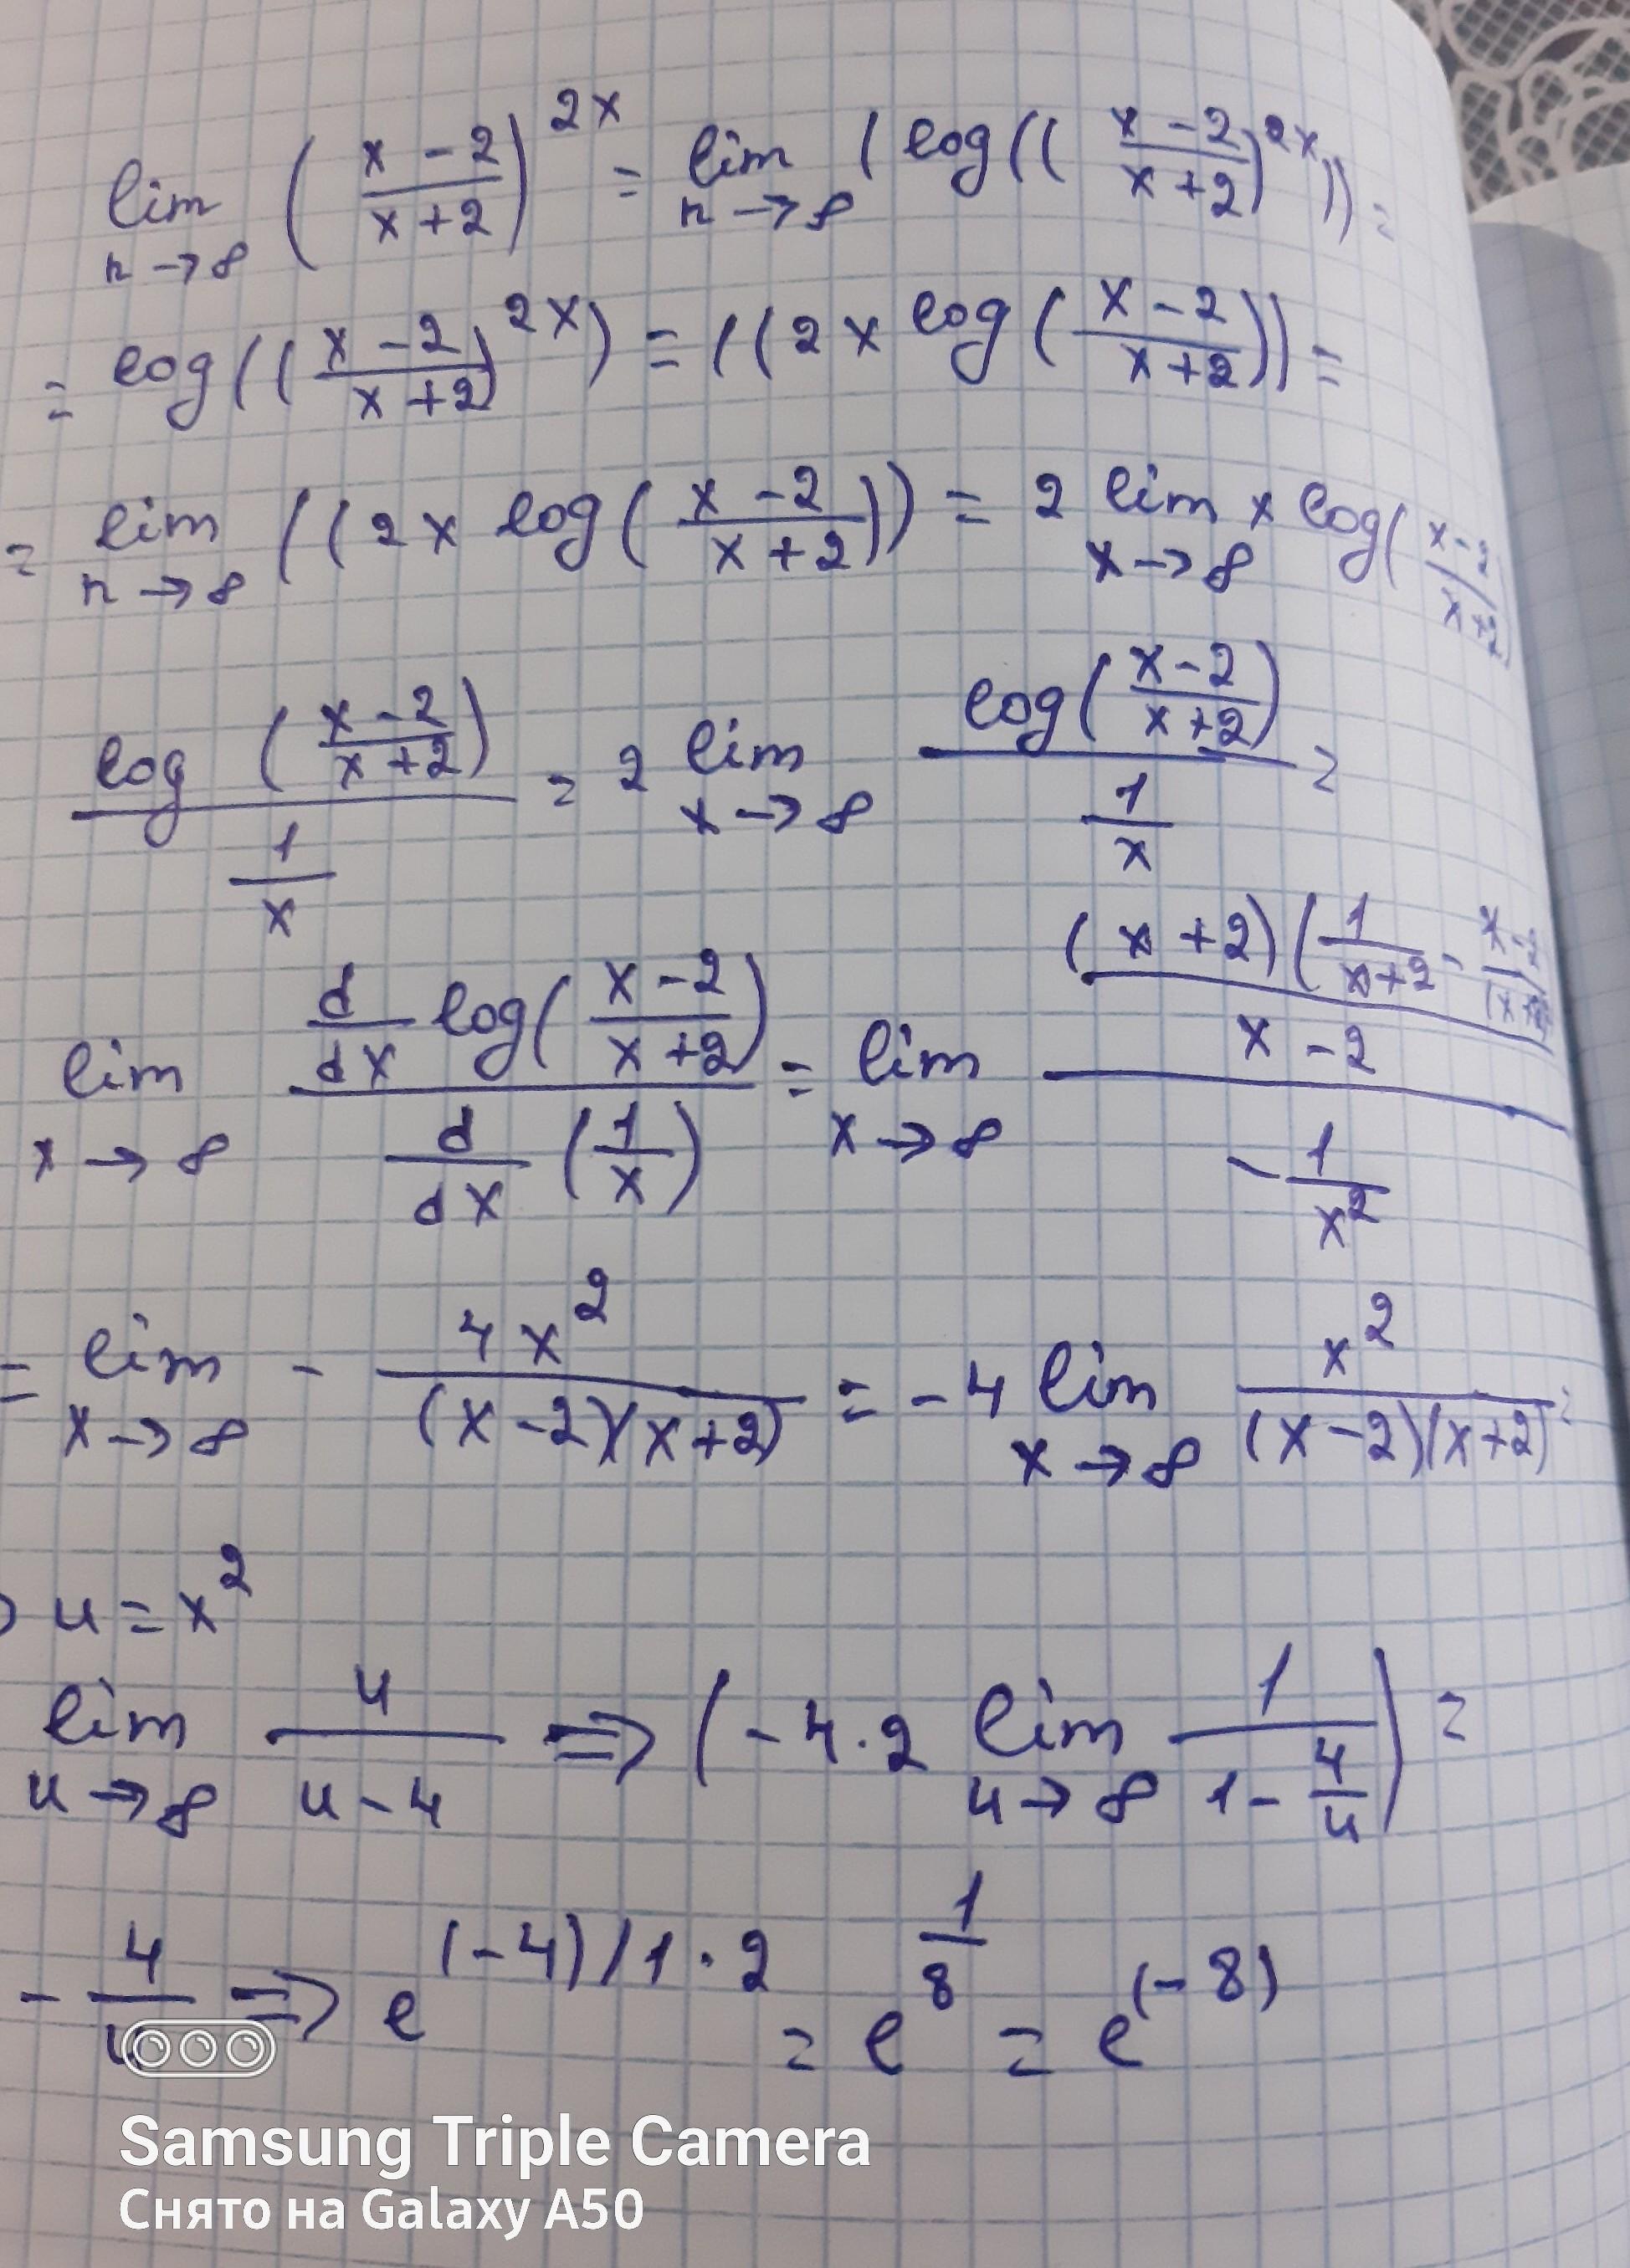 lim n→∞ ( (x-2)/(x+2) )^2x = lim n→∞ ( log(( (x-2)/(x+2) )^2x )) =
= log(( (x-2)/(x+2) )^2x ) = ((2x log( (x-2)/(x+2) )) =
= lim n→∞ ((2x log( (x-2)/(x+2) )) = 2 lim x→∞ x log( (x-2)/(x+2) )
log( (x-2)/(x+2) ) / (1/x) = 2 lim x→∞ log( (x-2)/(x+2) ) / (1/x) =
lim x→∞ ( d/dx log( (x-2)/(x+2) ) ) / ( d/dx (1/x) ) = lim x→∞ ( (x+2)( 1/(x+2) - (x-2)/ / (x-2) ) / ( -1/x^2 )
= lim x→∞ - 4x^2 / (x-2)(x+2) = -4 lim x→∞ x^2 / (x-2)(x+2) =
u = x^2
lim u→∞ u / (u-4) ⇒ ( -4·2 lim u→∞ 1 / (1 - 4/u) ) =
- 4/u ⇒ e^(-4)/1·2 = e^1/8 = e^(-8)
Samsung Triple Camera
Снято на Galaxy A50